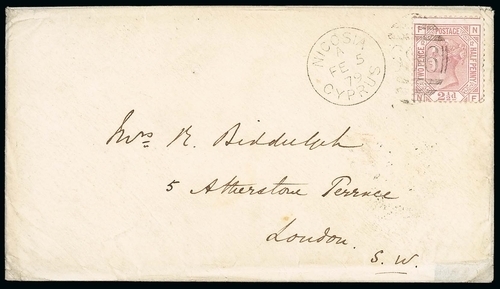 NICOSIA
A
FE 5
79
CYPRUS
POSTAGE
TWO PENCE
HALFPENNY
2½d
F N
N F
Mrs R. Biddulph
5 Atherstone Terrace
London.
S. W.